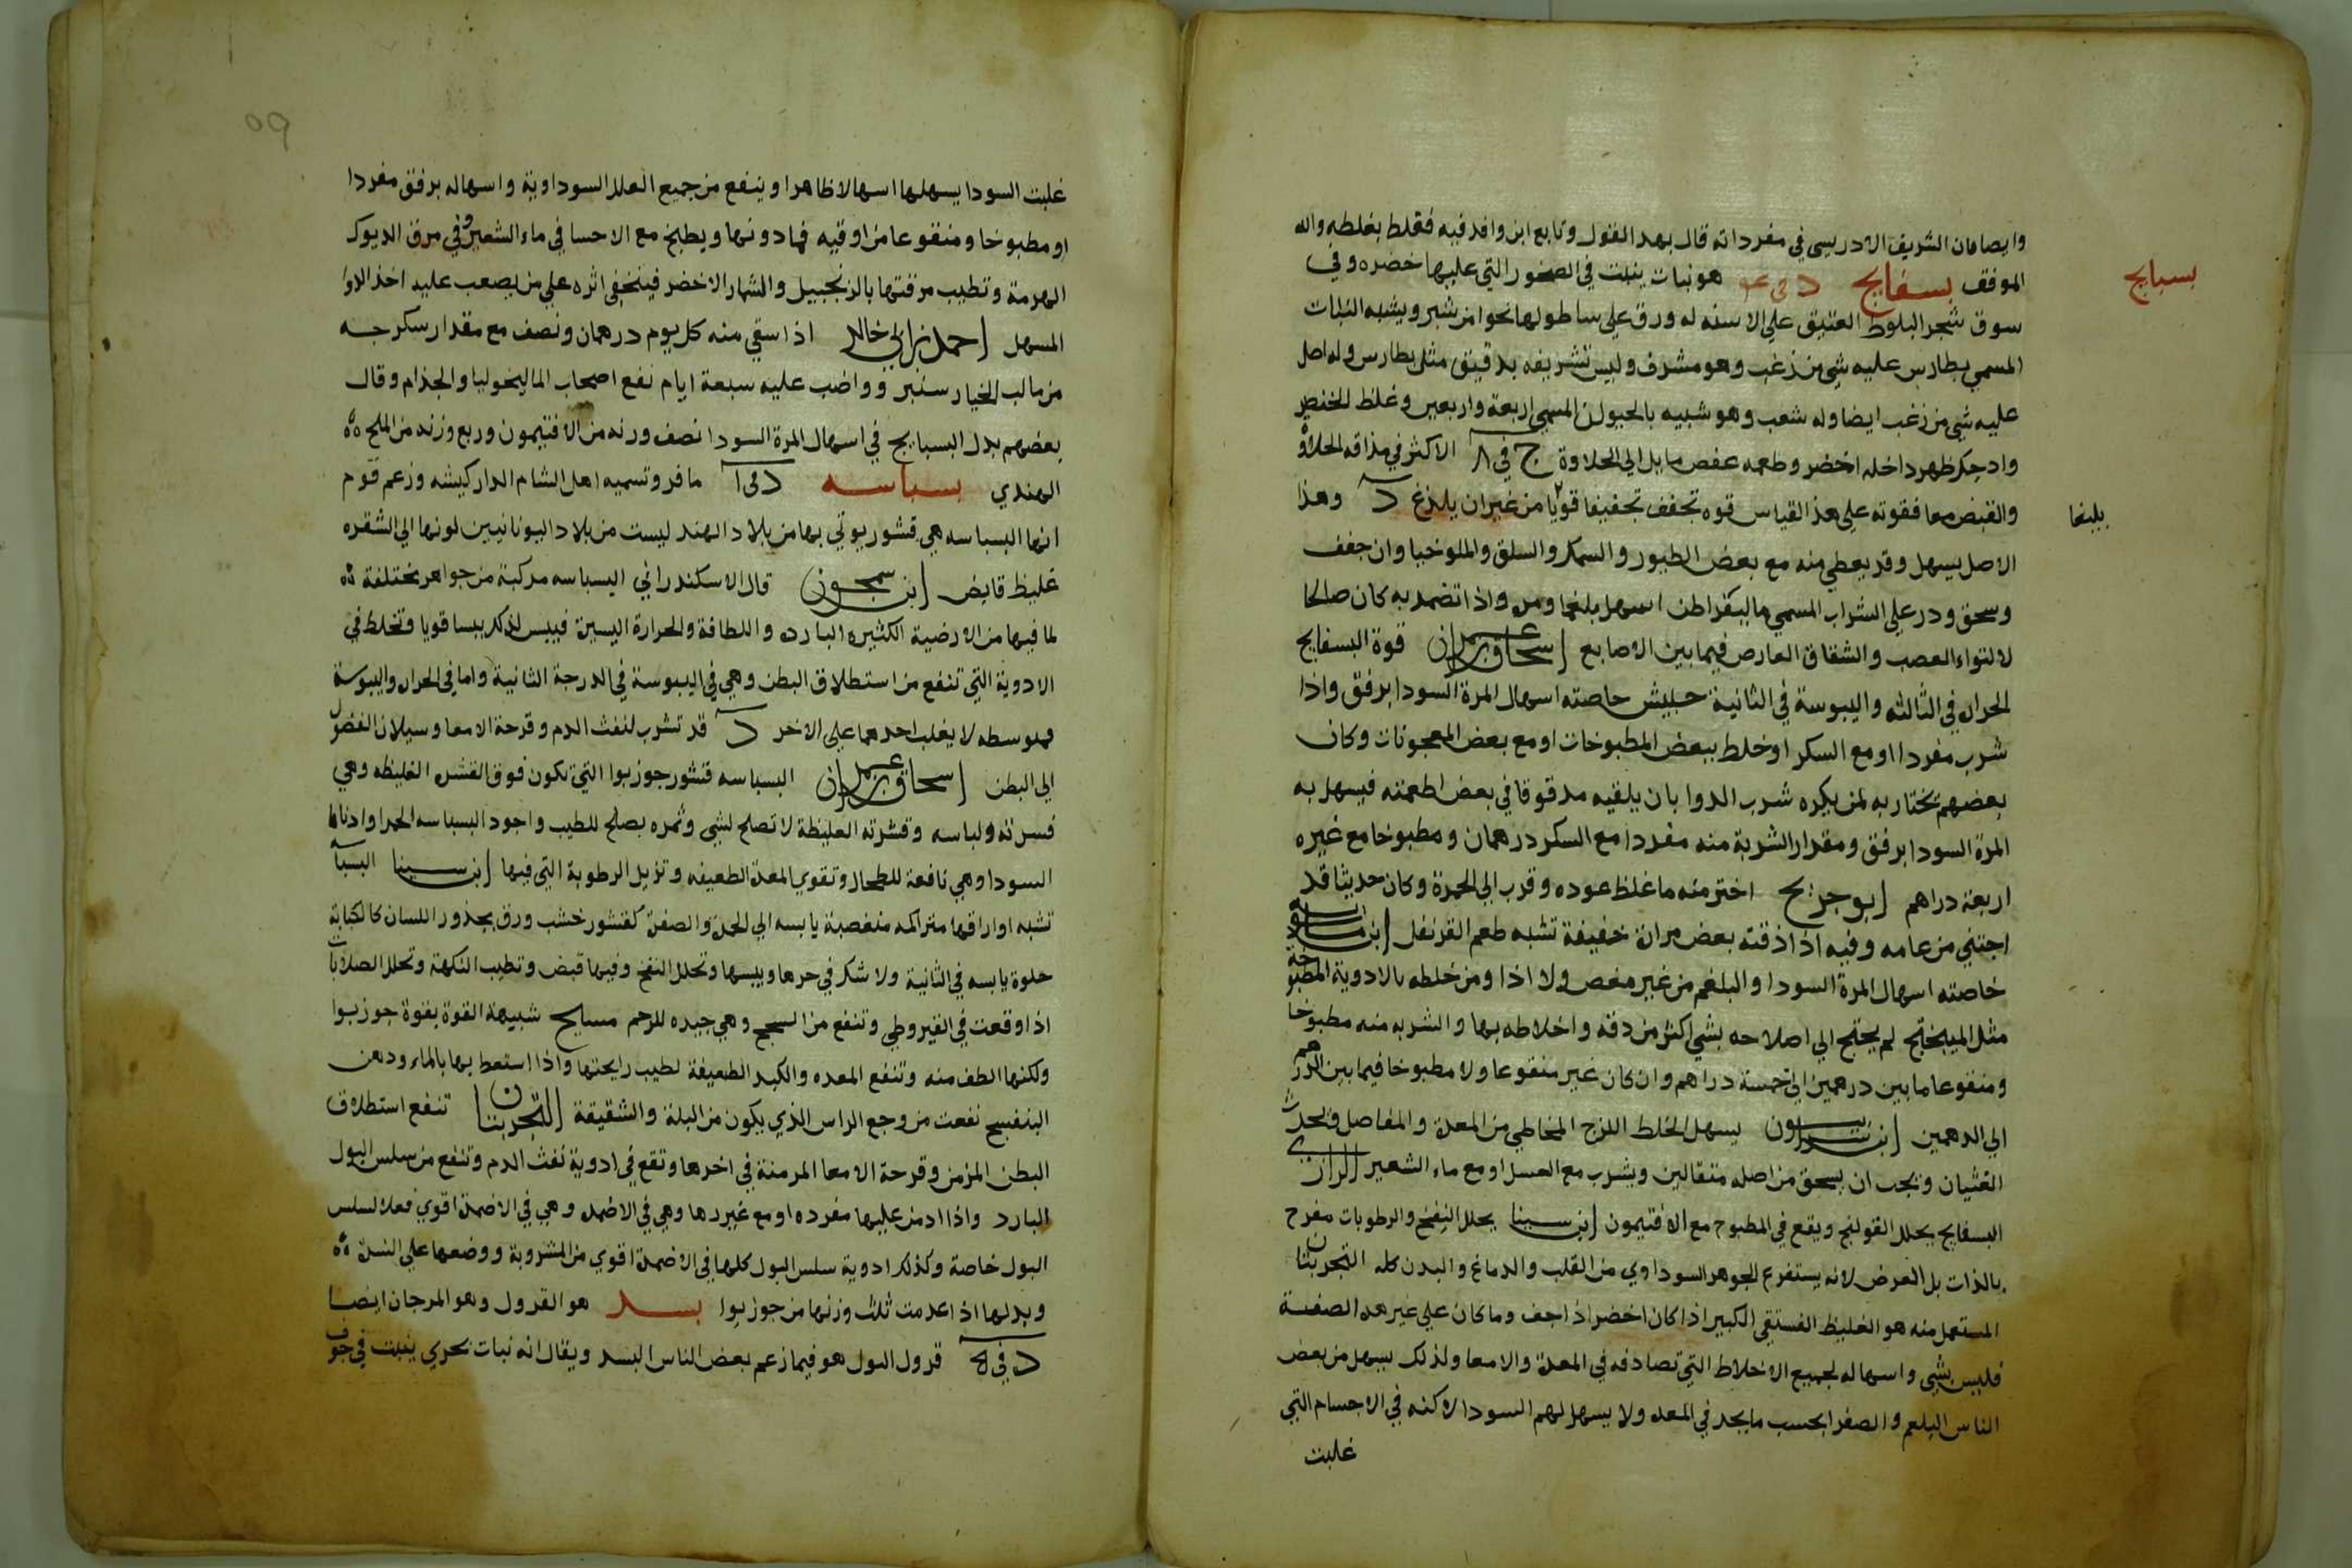 وايضا فان الشريف الادريسي في مفرداته قال بهذا القول وتابع ابن وافد فيه فغلط بغلطه والله
الموفق بسفايج هو نبات ينبت في الصخور التي عليها خضره وفي
بسبايج
سوق شجر البلوط العتيق على الاسنه له ورق على ساطولها نحوا من شبر ويشبه النبات
المسمي بطارس عليه شي من زغب وهو مشرف وليس تشريفه بدقيق مثل بطارس وله اصل
عليه شي من زغب ايضا وله شعب وهو شبيه بالحيوان المسمي اربعة واربعين وغلظ الخنصر
واد حك ظهر داخله اخضر وطعمه عفص مايل الي الحلاوة ج في ٨ الاكثر في مذاقه الحلاوة
والقبض معا فقوته علي هذ القياس قوه تجفف تجفيفا قويا من غير ان يلذغ د وهذا
بلبنها
الاصل يسهل وقد يعطي منه مع بعض الطيور والسمك والسلق والملوخيا وان جفف
وسحق وذر علي الشراب المسمي مالبقراطن اسهل بلغما ومره واذا تضمد به كان صالحا
لالتواء العصب والشقاق العارض فيما بين الاصابع اسحاق بن عمران قوة البسفايج
الحراره في الثالثه واليبوسة في الثانية حبيش خاصته اسهال المرة السودا برفق واذا
شرب مفردا او مع السكر او خلط ببعض المطبوخات او مع بعض المعجونات وكان
بعضهم يختار به لمن يكره شرب الدوا بان يلقيه مدقوقا في بعض اطعمته فيسهل به
المرة السودا برفق ومقدار الشربة منه مفردا مع السكر درهمان ومطبوخا مع غيره
اربعة دراهم ابو جريج اختر منه ما غلظ عوده وقرب الي الحمرة وكان حديثا قد
اجتني من عامه وفيه اذا ذقته بعض مرارة خفيفة تشبه طعم القرنفل ابن ماسويه
خاصته اسهال المرة السودا والبلغم من غير مغص ولا اذا ومن خلطه بالادوية المطبوخة
مثل الميبختج لم يحتج الي اصلاحه بشي اكثر من دقه واخلاطه بها والشربه منه مطبوخا
ومنقوعا ما بين درهمين الي خمسة دراهم وان كان غير منقوعا ولا مطبوخا فيما بين الدرهم
الي الدرهمين ابن سرابيون يسهل الخلط اللزج المخاطي من المعدة والمفاصل ويحدث
الغثيان ويجب ان يسحق من اصله مثقالين ويشرب مع العسل او مع ماء الشعير الرازي
البسفايج يحلل القولنج ويقع في المطبوخ مع الافتيمون ابن سينا يحلل النفخ والرطوبات مفرح
بالذات بل العرض لانه يستفرغ الجوهر السوداوي من القلب والدماغ والبدن كله التجربتان
المستعمل منه هو الغليظ الفستقي الكبير اذا كان اخضر اذا جف وما كان علي غير هذه الصفة
فليس بشي واسهاله لجميع الاخلاط التي تصادفه في المعدة والامعا ولذلك يسهل من بعض
الناس البلغم والصفرا بحسب ما يجد في المعده ولا يسهل لهم السودا لاكنه في الاجسام التي
غلبت
٥٩
غلبت السودا يسهلها اسهالا ظاهرا وينفع من جميع العلل السوداوية واسهاله برفق مفردا
او مطبوخا ومنقوعا من اوقيه فما دونها ويطبخ مع الاحسا في ماء الشعير وفي مرق الديوك
الهرمة وتطيب مرقتها بالزنجبيل والشمار الاخضر فيخفي اثره علي من يصعب عليه اخذ الدوا
المسهل احمد بن ابي خالد اذا سقي منه كل يوم درهمان ونصف مع مقدار سكرجه
من مالب الخيار سنبر وواضب عليه سبعة ايام نفع اصحاب الماليخوليا والجذام وقال
بعضهم بدل البسبايج في اسهال المرة السودا نصف وزنه من الافتيمون وربع وزنه من الملح
الهندي بسباسه د في ا ماقر وتسميه اهل الشام الداركيشه وزعم قوم
انها البسباسه هي قشور يوتي بها من بلاد الهند ليست من بلاد اليونانيين لونها الي الشقره
غليظ قابض ابن سمجون قال الاسكندراني البسباسه مركبة من جواهر مختلفة
لما فيها من الارضية الكثيره البارده واللطافة والحرارة اليسيرة فييبس لذلك يبسا قويا وتخلط في
الادوية التي تنفع من استطلاق البطن وهي في اليبوسة في الدرجة الثانية واما في الحراره واليبوسة
فمتوسطه لا يغلب احدهما علي الاخر د قد تشرب لنفث الدم وقرحة الامعا وسيلان الفضول
الي البطن اسحاق بن عمران البسباسه قشور جوزبوا التي تكون فوق القشر الغليظه وهي
قسرته ولباسه وقشرته الغليظة لا تصلح لشي وثمره يصلح للطيب واجود البسباسه الحمرا وادناها
السودا وهي نافعة للطحال وتقوي المعدة الضعيفه وتزيل الرطوبة التي فيها ابن سينا البسباسة
تشبه اوراقها متراكمه متغصبة يابسه الي الحمرة والصفرة كقشور خشب وورق يجذوا اللسان كالكبابة
حلوة يابسه في الثانية ولا شك في حرها ويبسها وتحلل النفخ وفيها قبض وتطيب النكهة وتحلل الصلابات
اذا وقعت في القيروطي وتنفع من السحج وهي جيده للرحم مسيح شبيهة القوة بقوة جوزبوا
ولكنها الطف منه وتنفع المعده والكبد الضعيفة لطيب رايحتها واذا استعط بها بالماء ودهن
البنفسج نفعت من وجع الراس الذي يكون من البلة والشقيقة التجربتان تنفع استطلاق
البطن المزمن وقرحة الامعا المزمنة في اخرها وتقع في ادوية نفث الدم وتنفع من سلس البول
البارد واذا ادمن عليها مفرده او مع غيرها وهي في الاضمده وهي في الاضمدة اقوي فعلا لسلس
البول خاصة وكذلك ادوية سلس البول كلها في الاضمدة اقوي من المشروبة ووضعها علي السرة
وبدلها اذا عدمت ثلث وزنها من جوزبوا بسد هو القرول وهو المرجان ايضا
د في ٥ قرول البول هو فيما زعم بعض الناس البسد ويقال انه نبات بحري ينبت في جوف